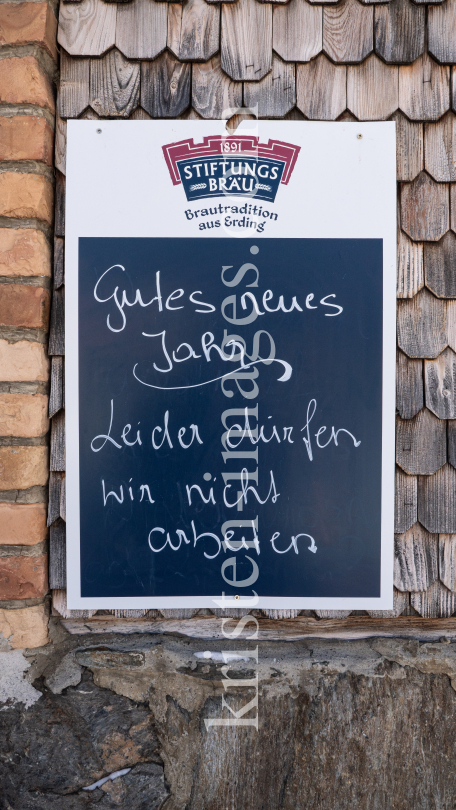 1891
STIFTUNGS
BRÄU
Brautradition
aus Erding
Gutes neues
Jahr
Leider dürfen
wir nicht
arbeiten
kristen-images.com